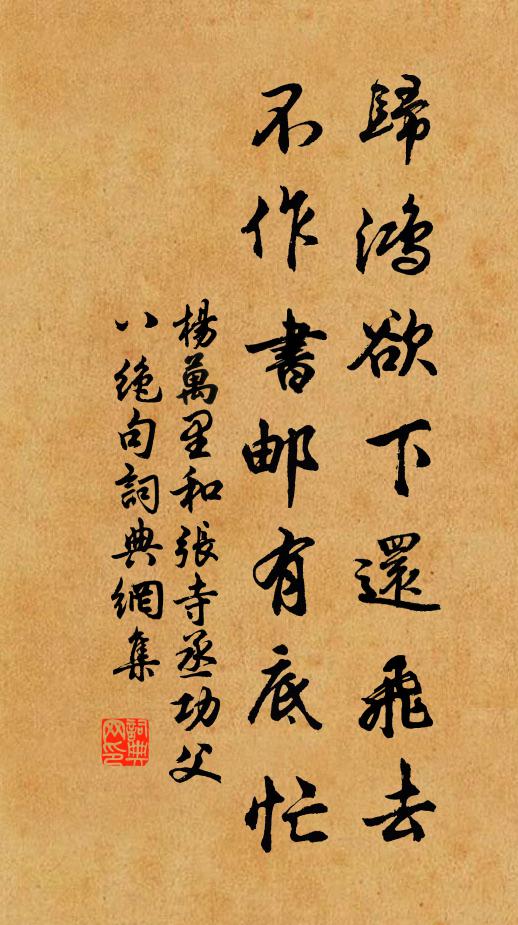 歸鴻欲下還飛去
不作書邮有底忙
楊萬里和張寺丞功父
八絶句詞典網集
詞典
网印